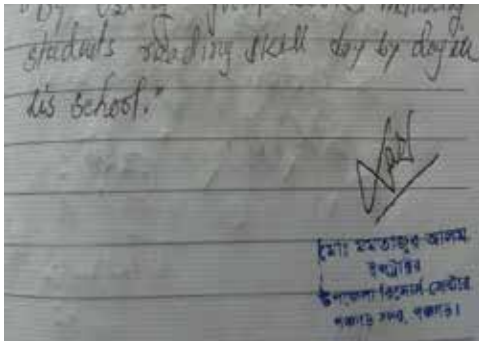 by using
students reading skill day by day in
his school."
মোঃ মমতাজুল আলম
ইন্সট্রাক্টর
উপজেলা রিসোর্স সেন্টার
পঞ্চগড় সদর, পঞ্চগড়।